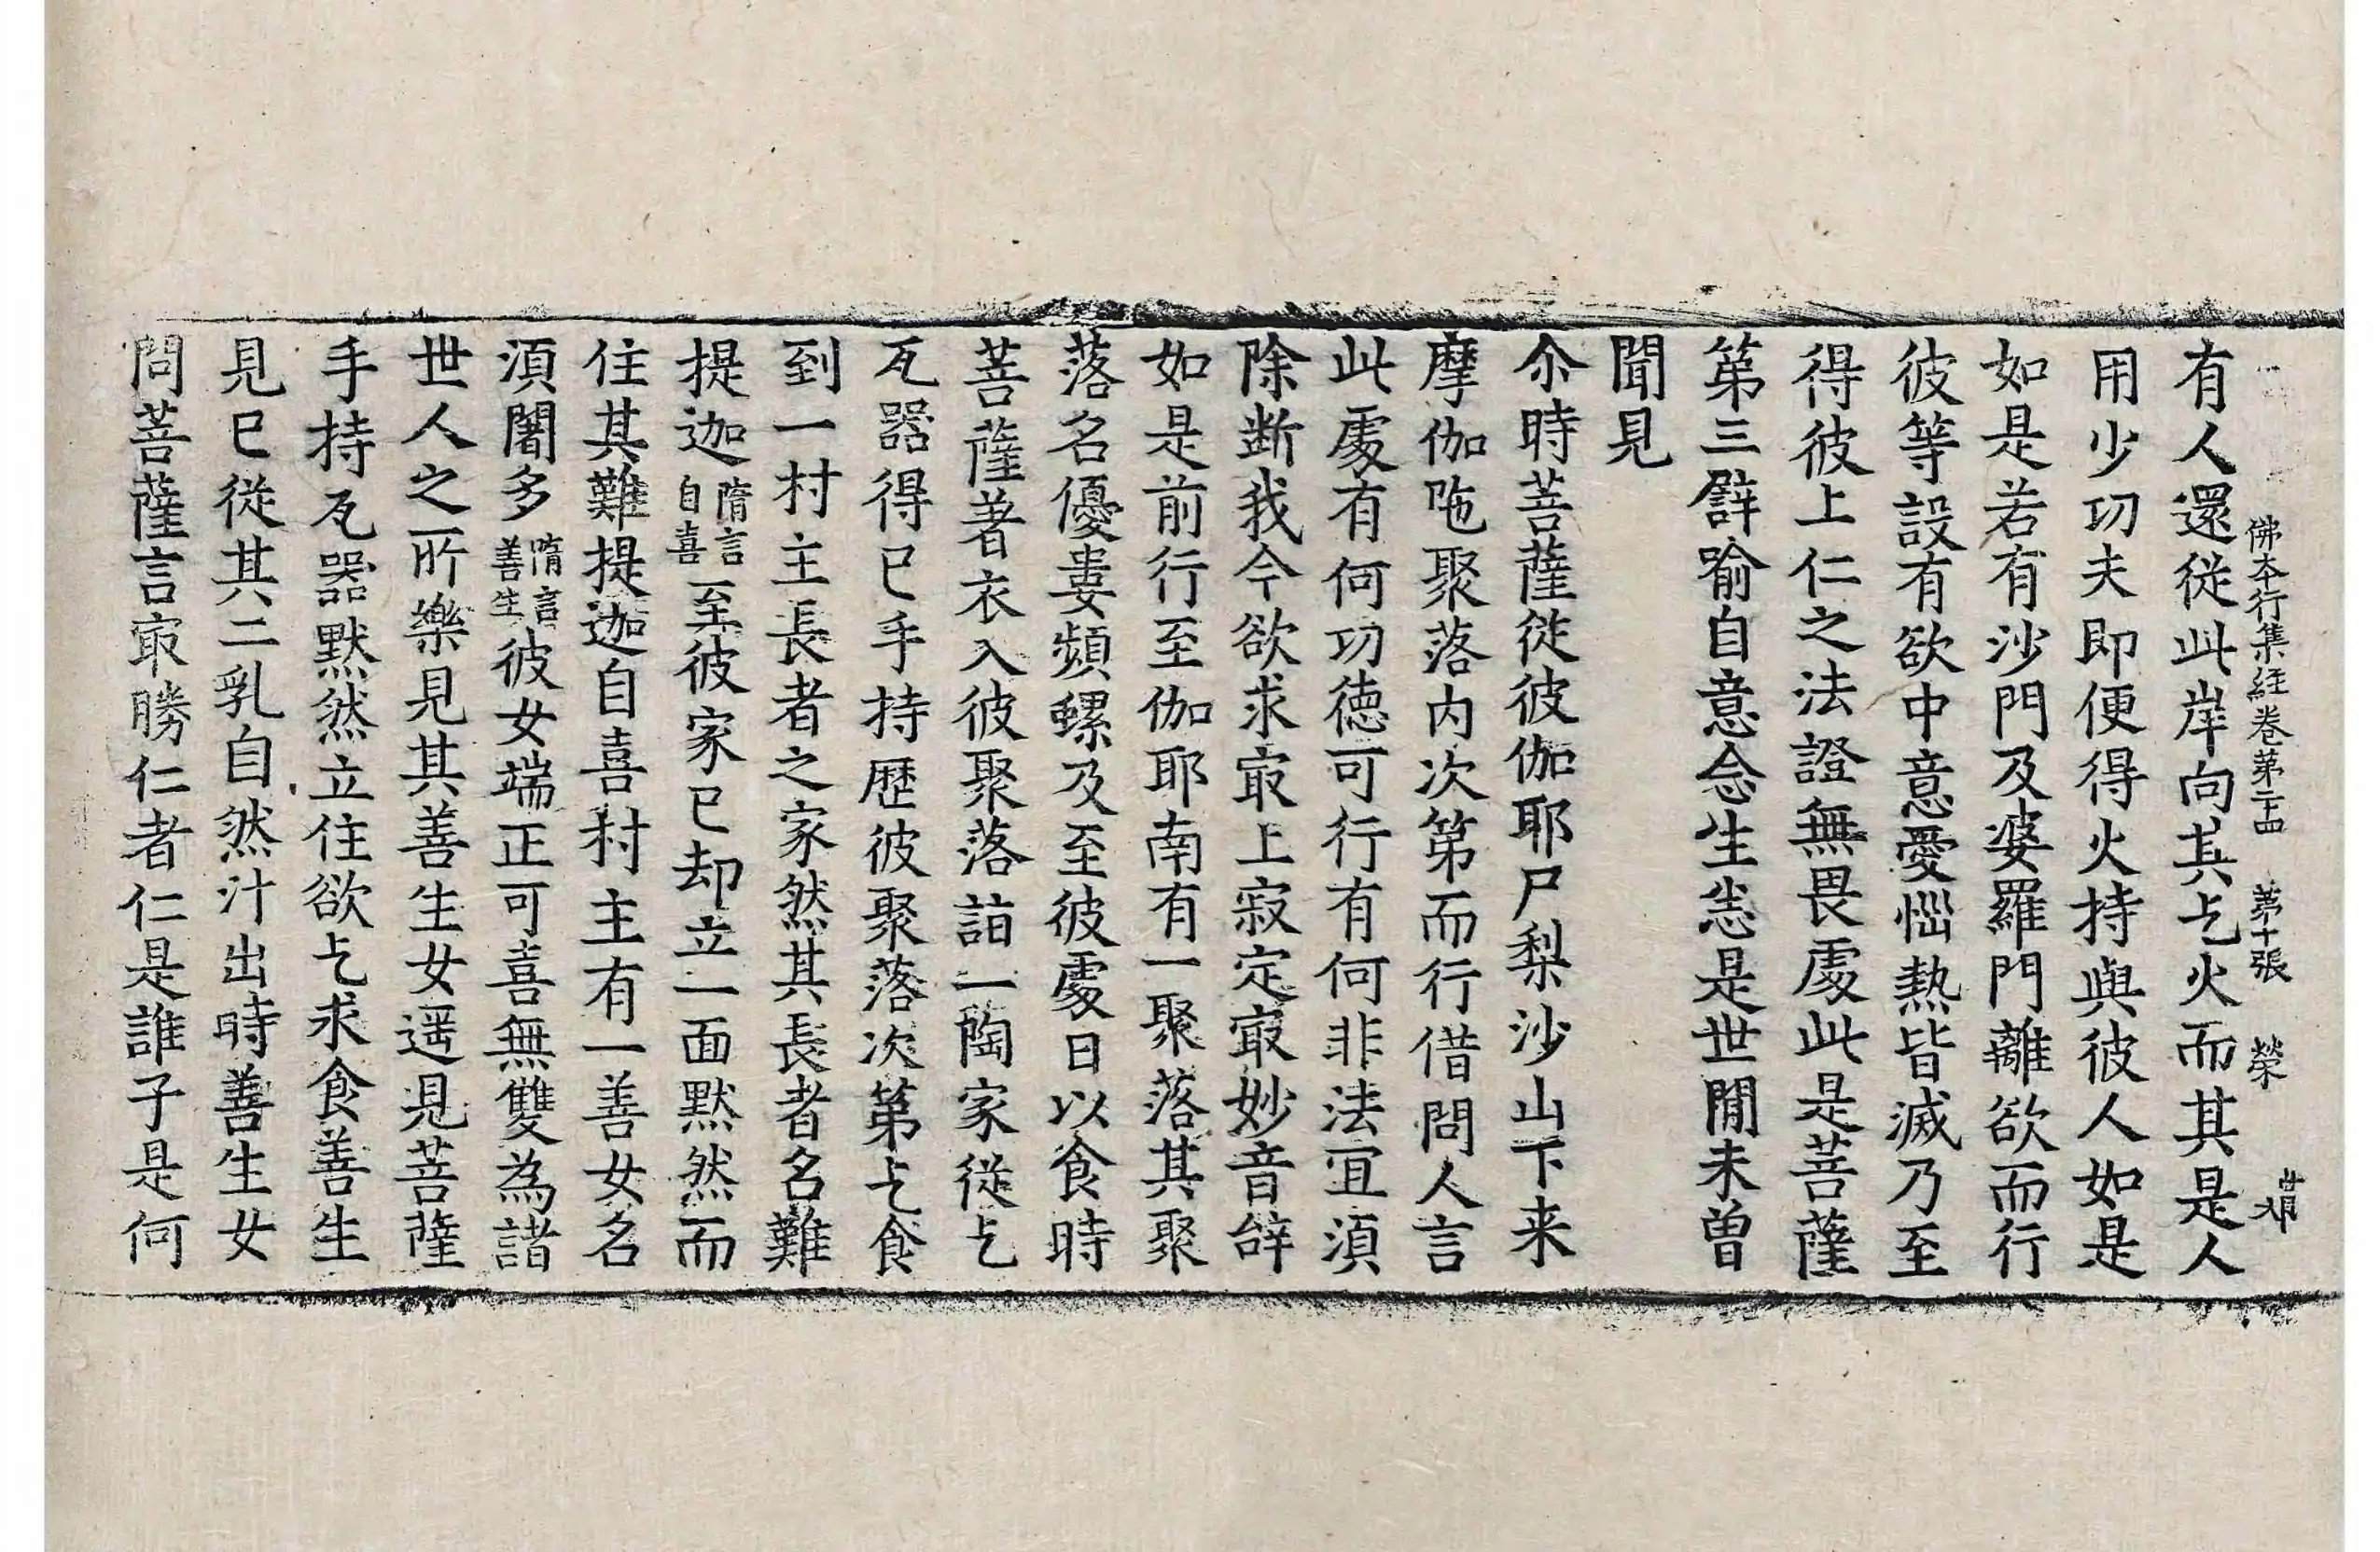 佛本行集經卷第二十四 第十張 榮
有人還從此岸向其乞火而其是人
用少功夫即便得火持與彼人如是
如是若有沙門及婆羅門離欲而行
彼等設有欲中意愛惱熱皆滅乃至
得彼上仁之法證無畏處此是菩薩
第三譬喻自意念生恙是世間未曾
聞見
尒時菩薩從彼伽耶尸梨沙山下来
摩伽陁聚落内次第而行借問人言
此處有何功德可行有何非法宜須
除断我今欲求㝡上寂定㝡妙音辝
如是前行至伽耶南有一聚落其聚
落名優婁頻螺及至彼處日以食時
菩薩著衣入彼聚落詣一陶家從乞
瓦器得已手持歷彼聚落次第乞食
到一村主長者之家然其長者名難
提迦隋言自喜至彼家已却立一面黙然而
住其難提迦自喜村主有一善女名
須闍多隋言善生彼女端正可喜無雙為諸
世人之所樂見其善生女遥見菩薩
手持瓦器黙然立住欲乞求食善生
見已從其二乳自然汁出時善生女
問菩薩言㝡勝仁者仁是誰子是何